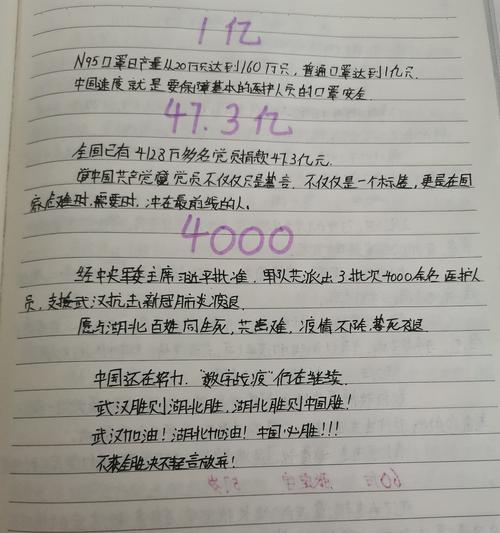 1亿
N95口罩日产量从20万只达到160万只，普通口罩达到1亿只.
中国速度就是要保障基本的医护人员的口罩安全.
47.3亿
全国已有4128万多名党员捐款47.3亿元.
中国共产党 党员不仅仅只是誓言.不仅仅是一个标签，更是在国
家危难时.需要时.冲在最前线的人。
4000
经中央军委主席习近平批准，军队共派出3批次4000余名医护人
员，支援武汉抗击新冠肺炎疫情
愿与湖北百姓同生死，共患难，疫情不除，誓死不退.
中国还在努力.“数字战疫”仍在继续.
武汉胜则湖北胜，湖北胜则中国胜！
武汉加油！湖北加油！中国必胜！！！
不获全胜决不轻言放弃！